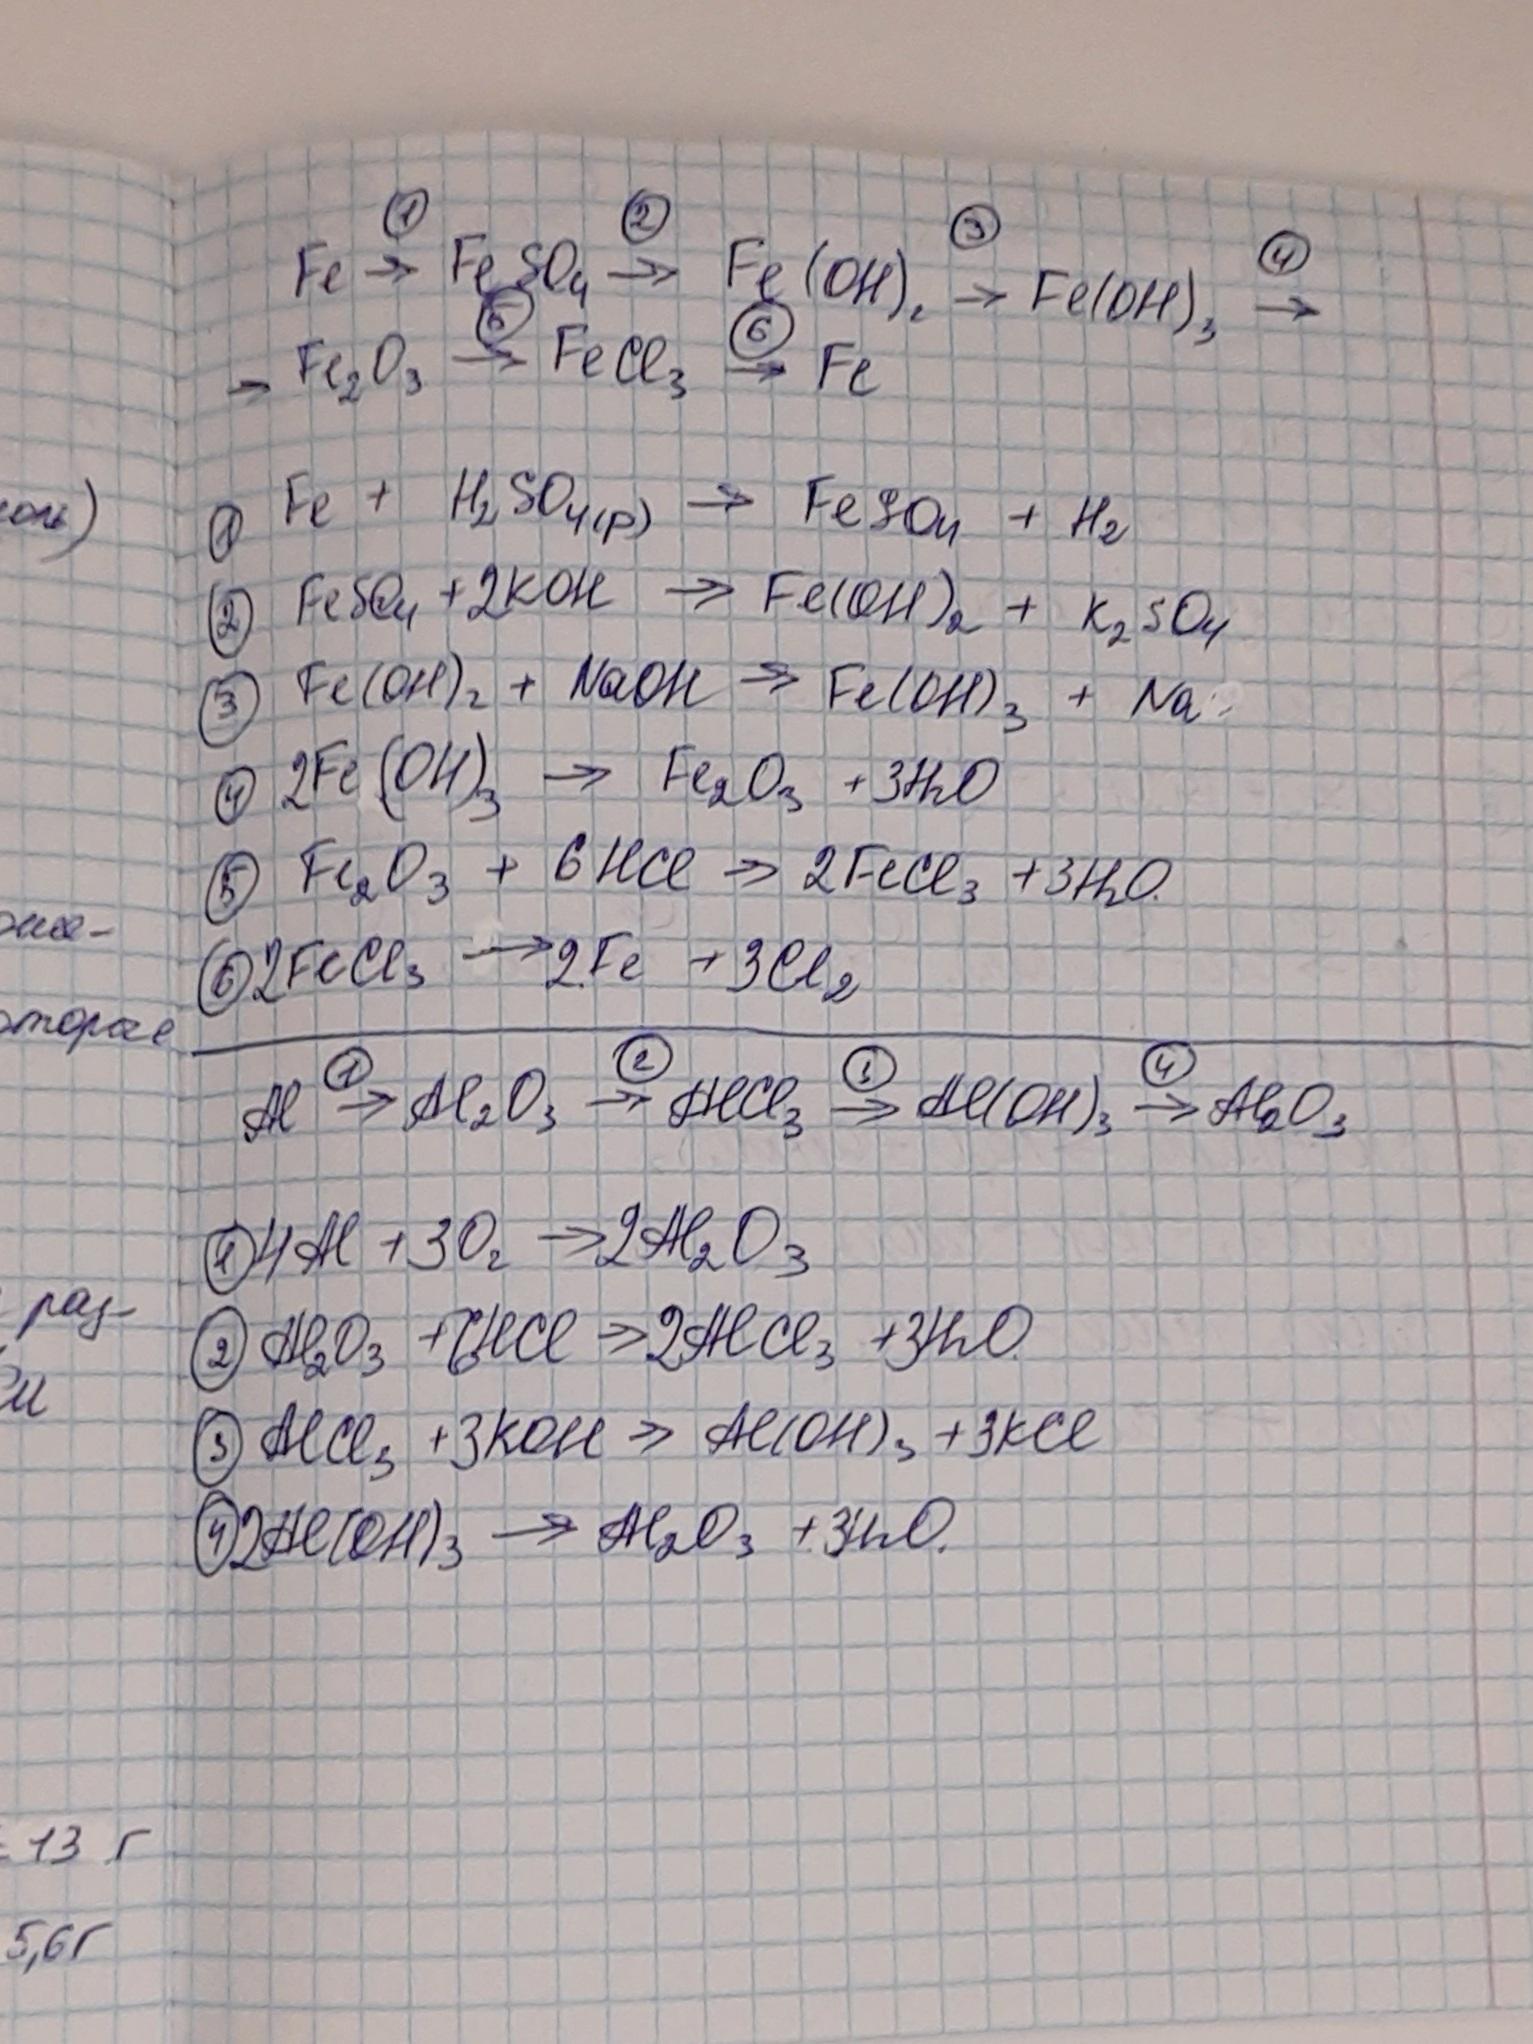 ① ② ③ ④
Fe → FeSO₄ → Fe(OH)₂ → Fe(OH)₃ →
⑤ ⑥
→ Fe₂O₃ → FeCl₃ → Fe
① Fe + H₂SO₄(р) → FeSO₄ + H₂
② FeSO₄ + 2KOH → Fe(OH)₂ + K₂SO₄
③ Fe(OH)₂ + NaOH → Fe(OH)₃ + Na
④ 2Fe(OH)₃ → Fe₂O₃ + 3H₂O
⑤ Fe₂O₃ + 6HCl → 2FeCl₃ + 3H₂O.
⑥ 2FeCl₃ → 2Fe + 3Cl₂
① ② ③ ④
Al → Al₂O₃ → AlCl₃ → Al(OH)₃ → Al₂O₃
① 4Al + 3O₂ → 2Al₂O₃
② Al₂O₃ + 6HCl → 2AlCl₃ + 3H₂O.
③ AlCl₃ + 3KOH → Al(OH)₃ + 3KCl
④ 2Al(OH)₃ → Al₂O₃ + 3H₂O.
раз-
= 13 г
5,6г